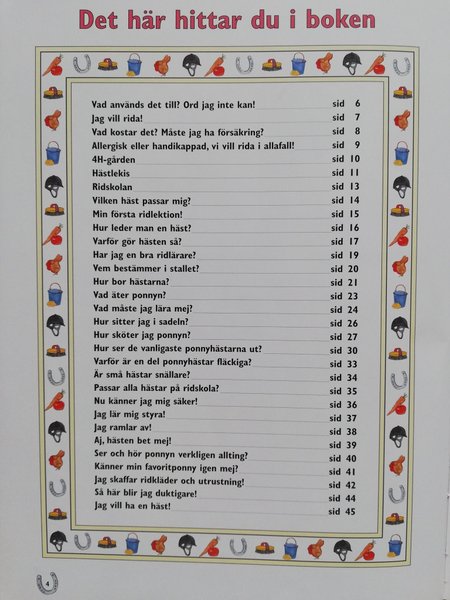 Det här hittar du i boken
Vad används det till? Ord jag inte kan! sid 6
Jag vill rida! sid 7
Vad kostar det? Måste jag ha försäkring? sid 8
Allergisk eller handikappad, vi vill rida i allafall! sid 9
4H-gården sid 10
Hästlekis sid 11
Ridskolan sid 13
Vilken häst passar mig? sid 14
Min första ridlektion! sid 15
Hur leder man en häst? sid 16
Varför gör hästen så? sid 17
Har jag en bra ridlärare? sid 19
Vem bestämmer i stallet? sid 20
Hur bor hästarna? sid 21
Vad äter ponnyn? sid 23
Vad måste jag lära mej? sid 24
Hur sitter jag i sadeln? sid 26
Hur sköter jag ponnyn? sid 27
Hur ser de vanligaste ponnyhästarna ut? sid 30
Varför är en del ponnyhästar fläckiga? sid 33
Är små hästar snällare? sid 34
Passar alla hästar på ridskola? sid 35
Nu känner jag mig säker! sid 36
Jag lär mig styra! sid 37
Jag ramlar av! sid 38
Aj, hästen bet mej! sid 39
Ser och hör ponnyn verkligen allting? sid 40
Känner min favoritponny igen mej? sid 41
Jag skaffar ridkläder och utrustning! sid 42
Så här blir jag duktigare! sid 44
Jag vill ha en häst! sid 45
4